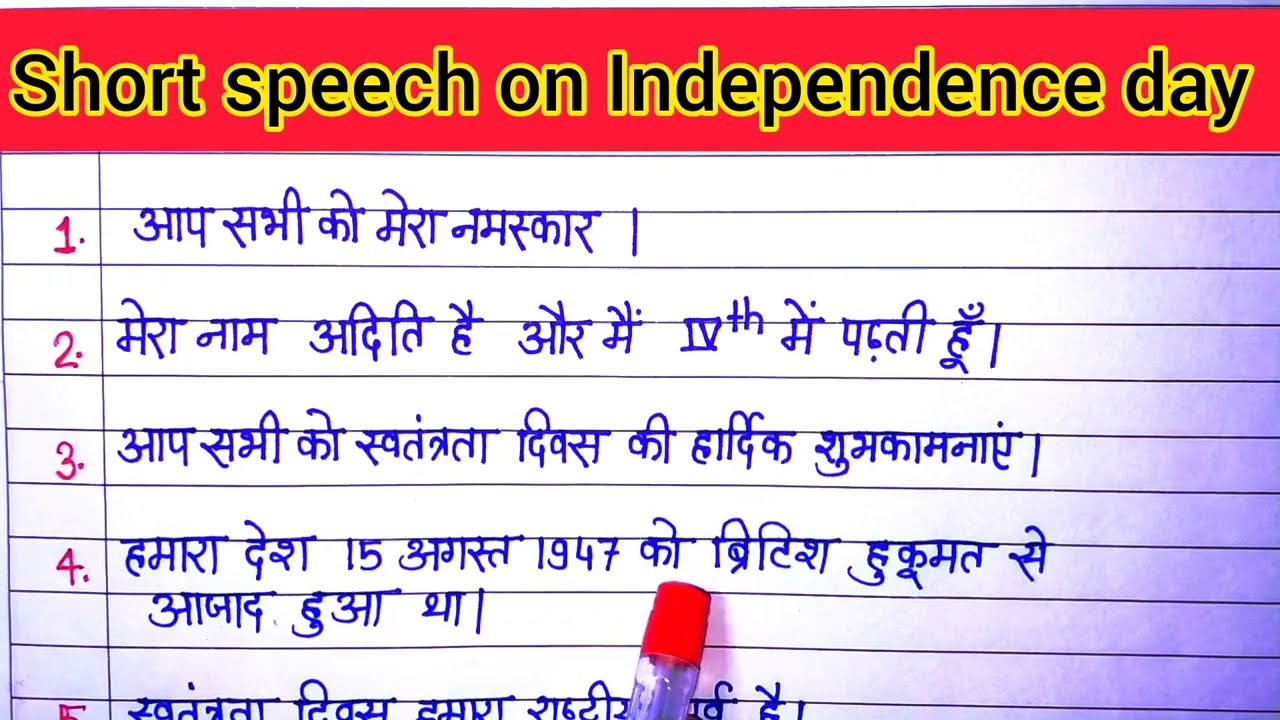 Short speech on Independence day
1. आप सभी को मेरा नमस्कार ।
2. मेरा नाम अदिति है और मैं IVth में पढ़ती हूँ।
3. आप सभी को स्वतंत्रता दिवस की हार्दिक शुभकामनाएं।
4. हमारा देश 15 अगस्त 1947 को ब्रिटिश हुकूमत से
आजाद हुआ था।
5. स्वतंत्रता दिवस हमारा है।